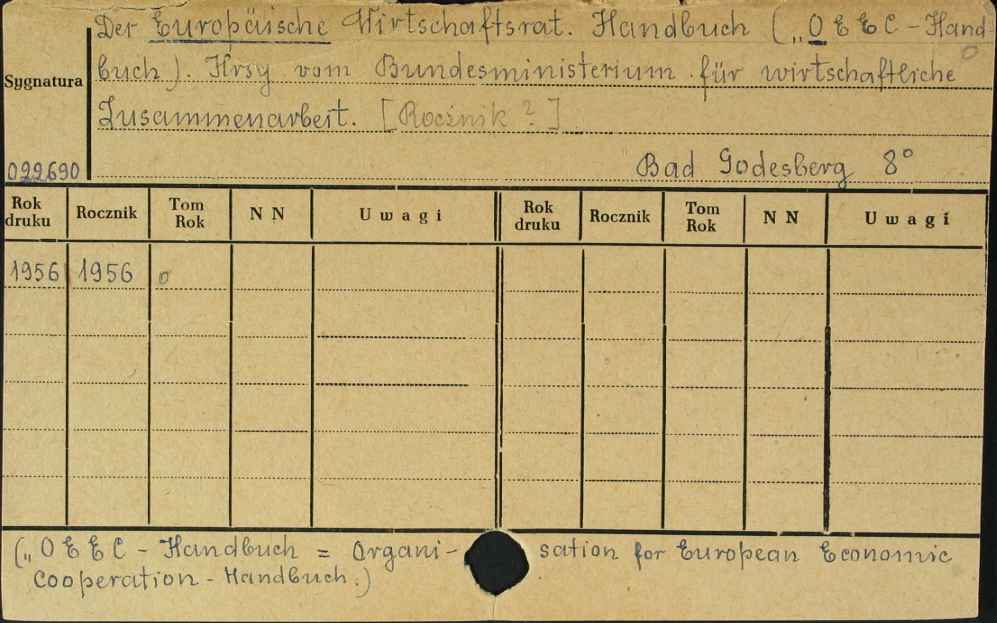 Der Europäische Wirtschaftsrat. Handbuch („OEEC-Hand-
buch). Hrsg vom Bundesministerium für wirtschaftliche
Sygnatura
Zusammenarbeit. [Rocznik ?]
099690 Bad Godesberg 8°
Rok druku Rocznik Tom Rok NN Uwagi Rok druku Rocznik Tom Rok NN Uwagi
1956 1956 0
(„OEEC - Handbuch = Organi- sation for European Economic
Cooperation - Handbuch.)